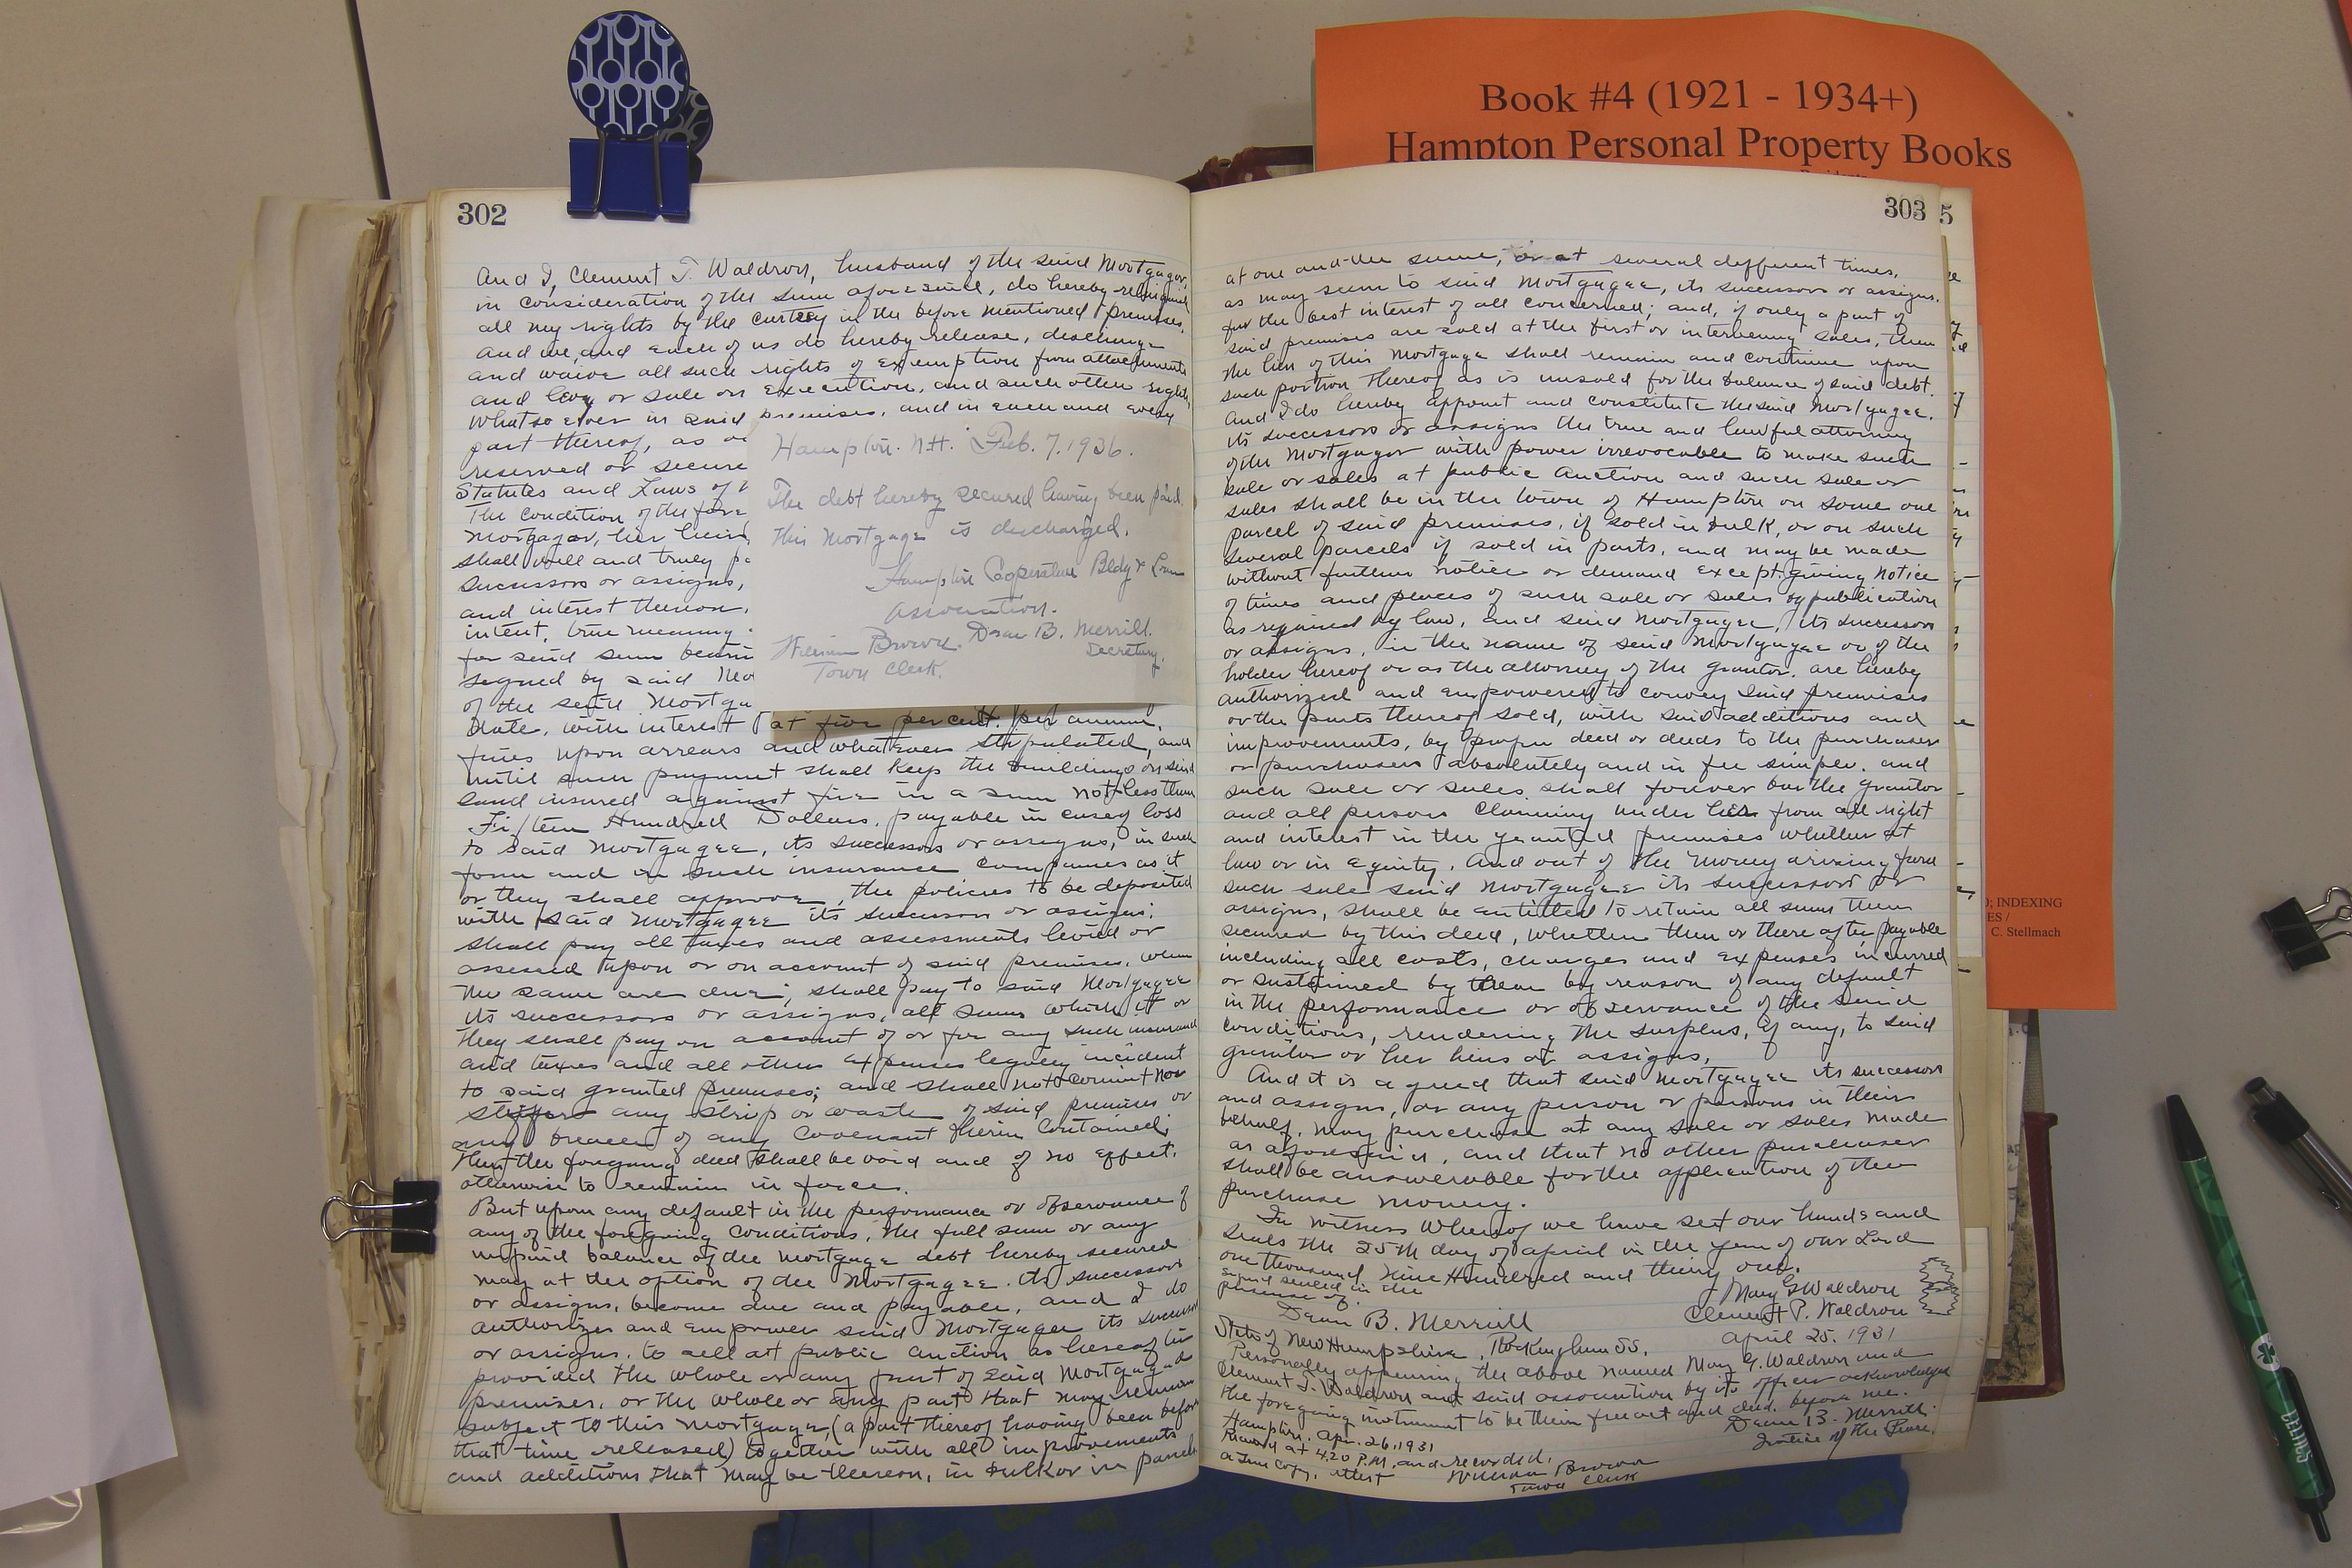 Book #4 (1921 - 1934+)
Hampton Personal Property Books
302
And I, Clement T. Waldron, husband of the said Mortgagor,
in consideration of the sum aforesaid, do hereby relinquish
all my rights by the curtesy in the before mentioned premises.
And we, and each of us do hereby release, discharge
and waive all such rights of exemption from attachments
and levy or sale on execution, and such other rights
whatsoever in said premises, and in each and every
part thereof, as
reserved or secure
Statutes and Laws of
The condition of the fore
Mortgagor, her heirs
shall well and truly pa
successors or assigns,
and interest thereon,
intent, true meaning
for said sum bearin
signed by said Mo
of the said Mortga
date, with interest at five per cent. per annum,
fines upon arrears and whatever stipulated, and
until such payment shall keep the buildings on said
land insured against fire in a sum not less than
Fifteen Hundred Dollars, payable in case of loss
to said Mortgagee, its successors or assigns, in such
form and in such insurance companies as it
or they shall approve, the policies to be deposited
with said Mortgagee its successors or assigns;
shall pay all taxes and assessments levied or
assessed upon or on account of said premises, when
the same are due; shall pay to said Mortgagee
its successors or assigns, all sums which it or
they shall pay on account of or for any such insurance
and taxes and all other expenses legally incident
to said granted premises; and shall not commit nor
suffer any strip or waste of said premises or
any breach of any covenant herein contained;
then the foregoing deed shall be void and of no effect,
otherwise to remain in force.
But upon any default in the performance or observance of
any of the foregoing conditions, the full sum or any
unpaid balance of the Mortgage debt hereby secured
may at the option of the Mortgagee. its successors
or assigns, become due and payable, and I do
authorize and empower said Mortgagee its successors
or assigns, to sell at public auction as hereafter
provided the whole or any part of said Mortgaged
premises, or the whole or any part that may remain
subject to this Mortgage, (a part thereof having been before
that time released) together with all improvements
and additions that may be thereon, in bulk or in parcels
Hampton. N.H. Feb. 7. 1936.
The debt hereby secured having been paid
this Mortgage is discharged.
Hampton Coperative Bldg & Loan
Association.
William Brown. Dean B. Merrill.
Town Clerk. Secretary.
303
5
at one and the same, or at several different times,
as may seem to said Mortgagee, its successors or assigns.
for the best interest of all concerned; and, if only a part of
said premises are sold at the first or intervening sales, then
the lien of this Mortgage shall remain and continue upon
such portion thereof as is unsold for the balance of said debt.
And I do hereby appoint and constitute the said Mortgagee.
its successors or assigns the true and lawful attorney
of the Mortgagor with power irrevocable to make such
sale or sales at public Auction and such sale or
sales shall be in the town of Hampton on some one
parcel of said premises, if sold in bulk, or on such
several parcels if sold in parts, and may be made
without further notice or demand except giving notice
of times and places of such sale or sales by publication
as required by law, and said Mortgagee, its successors
or assigns, in the name of said Mortgagee or of the
holder hereof or as the attorney of the grantor. are hereby
authorized and empowered to convey said premises
or the parts thereof sold, with said additions and
improvements, by proper deed or deeds to the purchaser
or purchasers absolutely and in fee simple. and
such sale or sales shall forever bar the grantor
and all persons claiming under her from all right
and interest in the granted premises whether at
law or in equity. And out of the money arising from
such sale said Mortgagee its successors or
assigns, shall be entitled to retain all sums then
secured by this deed, whether then or there after payable
including all costs, charges and expenses incurred
or sustained by them by reason of any default
in the performance or observance of the said
conditions, rendering the surplus, if any, to said
grantor or her heirs or assigns,
And it is agreed that said Mortgagee its successors
and assigns, or any person or persons in their
behalf, may purchase at any sale or sales made
as aforesaid, and that no other purchaser
shall be answerable for the application of the
purchase money.
In witness Whereof we have set our hands and
seals the 25th day of April in the year of our Lord
one thousand nine Hundred and thirty one.
signed sealed in the
presence of.
Mary G Waldron
Dean B. Merrill
Clement T. Waldron
April 25. 1931
State of New Hampshire, Rockingham SS.
Personally appearing the above named Mary G. Waldron and
Clement T. Waldron and said association by its officer acknowledged
the foregoing instrument to be their free act and deed. before me.
Dean B. Merrill.
Justice of the Peace.
Hampton. Apr. 26. 1931
Received at 4.20 P.M. and recorded.
a true copy, attest William Brown
Town Clerk
; INDEXING
ES /
C. Stellmach